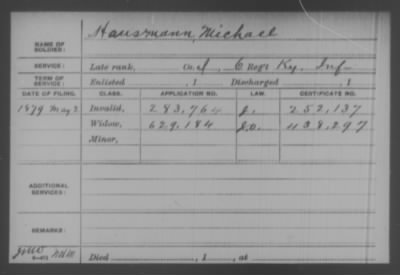 NAME OF SOLDIER: Hausmann, Michael
SERVICE: Late rank, Co. I, 6 Reg't Ky. Inf.
TERM OF SERVICE: Enlisted , 1 Discharged , 1
DATE OF FILING. CLASS. APPLICATION NO. LAW. CERTIFICATE NO.
1879 May 2 Invalid, 283,764 252,137
Widow, 629,184 438,297
Minor,
ADDITIONAL SERVICES:
REMARKS:
Died , 1 , at